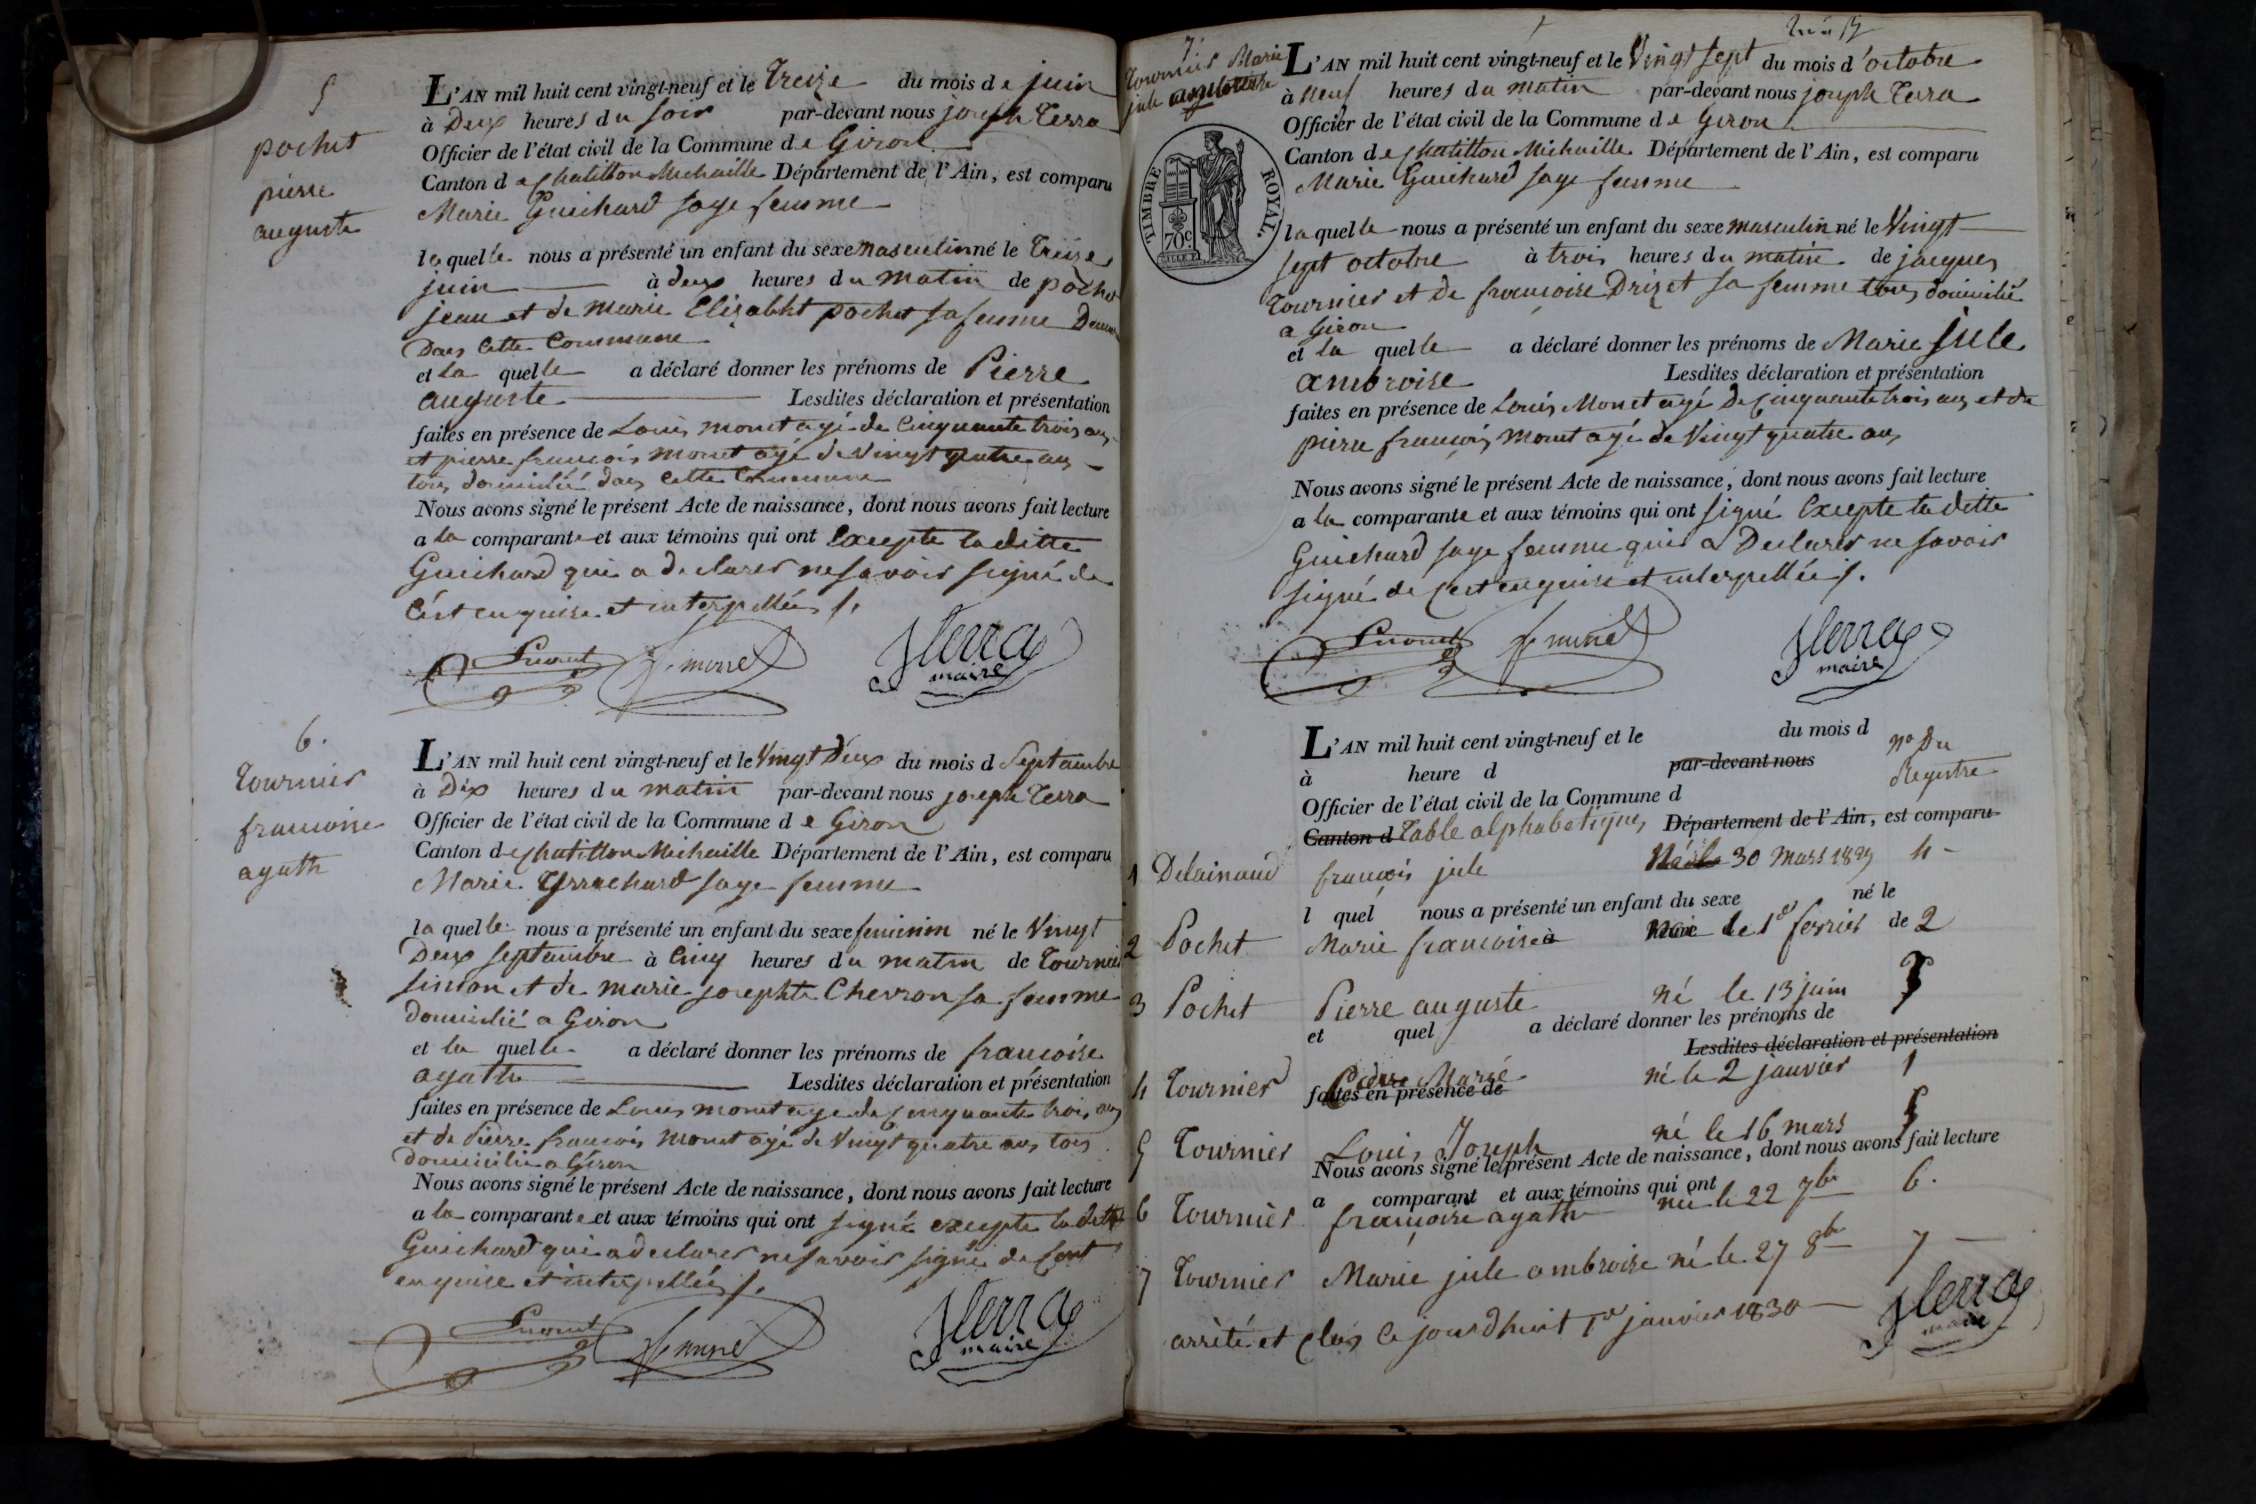 5
pochet
pierre
auguste
L'AN mil huit cent vingt-neuf et le treize du mois de juin
à Deux heures du soir par-devant nous joseph terra
Officier de l'état civil de la Commune de Giron
Canton de chatillon Michaille Département de l'Ain, est comparu
Marie Guichard sage femme
laquelle nous a présenté un enfant du sexe masculin né le treize
juin à deux heures du matin de pochet
jean et de marie Elisabht pochet sa femme
Dans cette Commune
et la quelle a déclaré donner les prénoms de Pierre
auguste Lesdites déclaration et présentation
faites en présence de Louis monet agé de Cinquante trois ans
et pierre francois monet agé de vingt quatre ans
tous domicilié dans cette Commune
Nous avons signé le présent Acte de naissance, dont nous avons fait lecture
a la comparante et aux témoins qui ont Excepte la ditte
Guichard qui a declarer ne savoir signé de
Cést enquise et interpellée /.
terra
maire
6.
tournier
francoise
agath
L'AN mil huit cent vingt-neuf et le vingt Deux du mois d Septambre
à Dix heures du matin par-devant nous joseph terra
Officier de l'état civil de la Commune de Giron
Canton de chatillon Michaille Département de l'Ain, est comparu
Marie Guichard sage femme
laquelle nous a présenté un enfant du sexe feminin né le Vingt
Deux septambre à Cinq heures du matin de tournier
simon et de marie josephte Chevron sa femme
domicilié a Giron
et la quelle a déclaré donner les prénoms de francoise
agathe Lesdites déclaration et présentation
faites en présence de Louis monet agé de cinquante trois ans
et de Pierre francois monet agé de Vingt quatre ans tous
domicilié a Giron
Nous avons signé le présent Acte de naissance, dont nous avons fait lecture
a la comparante et aux témoins qui ont signé excepte la ditte
Guichard qui a declarer ne savoir signé de Cest
enquise et interpellée /.
terra
maire
7.
tournier Marie
jule
TIMBRE ROYAL.
70c
L'AN mil huit cent vingt-neuf et le Vingt sept du mois d'octobre
à neuf heures du matin par-devant nous joseph terra
Officier de l'état civil de la Commune de Giron
Canton de chatillon Michaille Département de l'Ain, est comparu
Marie Guichard sage femme
laquelle nous a présenté un enfant du sexe masculin né le Vingt
sept octobre à trois heures du matin de jacques
tournier et de francoise Drizet sa femme tous domicilié
a Giron
et la quelle a déclaré donner les prénoms de Marie jule
ambroise Lesdites déclaration et présentation
faites en présence de Louis Monet agé de Cinquante trois ans et de
pierre francois monet agé de Vingt quatre ans
Nous avons signé le présent Acte de naissance, dont nous avons fait lecture
a la comparante et aux témoins qui ont signé Excepte la ditte
Guichard sage femme qui a Declarer ne savoir
signé de Cest enquise et interpellée /.
terra
maire
L'AN mil huit cent vingt-neuf et le du mois d
à heure d par-devant nous no Du
Registre
Officier de l'état civil de la Commune d
Canton d Table alphabetique, Département de l'Ain, est comparu
1 Delainaud francois jule Né le 30 mars 1829 4
l quel nous a présenté un enfant du sexe né le
2 Pochet Marie francoise à née le 1er fevrier de 2
3 Pochet Pierre auguste né le 13 juin 5
et quel a déclaré donner les prénoms de
Lesdites déclaration et présentation
4 Tournier Marie né le 2 janvier 1
faites en présence de
5 Tournier Louis Joseph né le 16 mars 3
Nous avons signé le présent Acte de naissance, dont nous avons fait lecture
a comparant et aux témoins qui ont
6 Tournier francoise agath née le 22 7bre 6.
7 Tournier Marie jule ambroise né le 27 8bre 7
arrêté et clos ce jourdhuit 1er janvier 1830
terra
maire